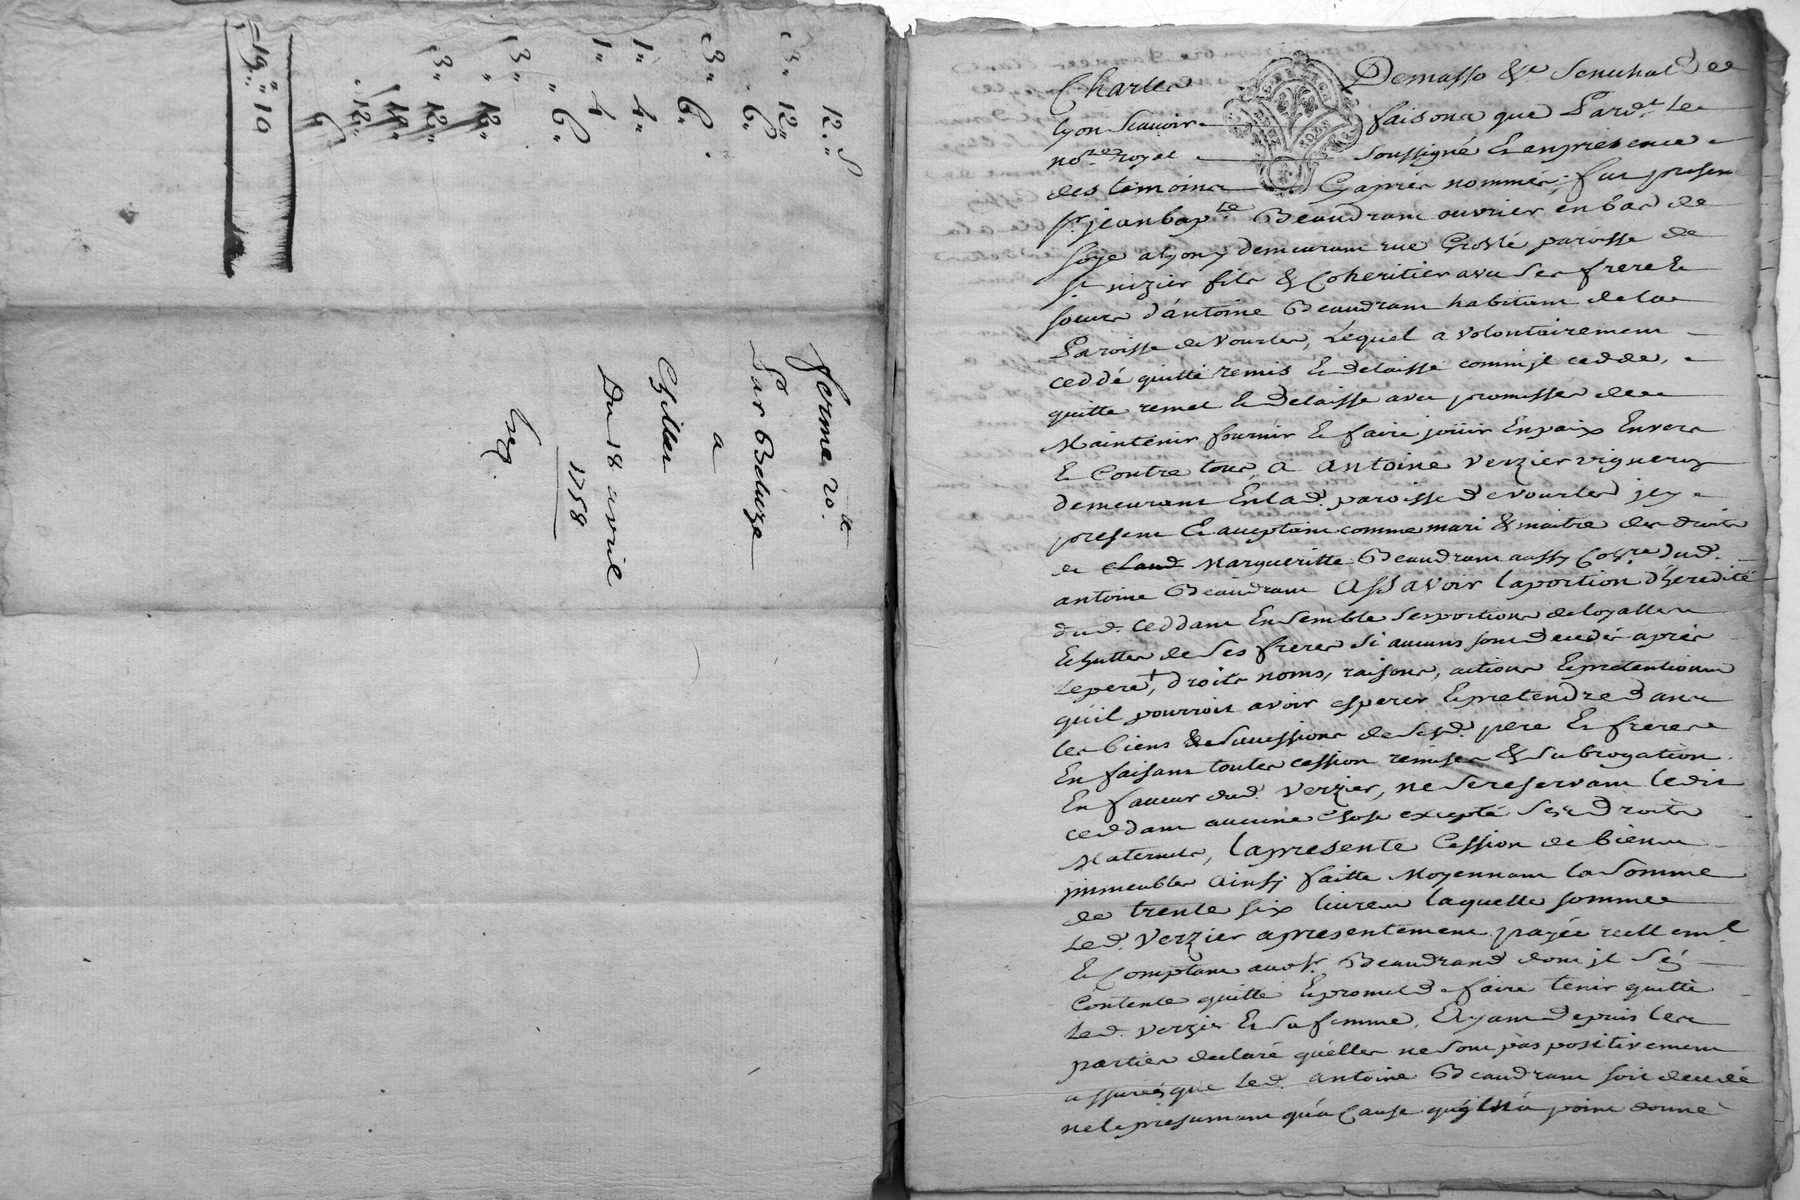 12 s
3 12
6
3 6
1 4
1 4
6
3 12
3 12
12
6
19 10
ferme 20.lle
Par Béluze
a
Giller
Du 18 avril
1758
Charles Demasso &c Senechal de
lyon Scavoir faisons que Pard.t le
no.re royal soussigné & en presence
des temoins Cy aprés nommés, fut present
s.r jean bap.te Beaudrant ouvrier en bas de
soye a lyon y demeurant rue Grolé paroisse de
s.t nizier fils & Coheritier avec ses frere &
soeurs d'antoine Beaudrant habitant de la
Paroisse de Vourles, Lequel a volontairement
ceddé quitté remis & delaissé comm'jl cedde,
quitte remet & delaisse avec promesse de
Maintenir fournir & faire joüir En paix Envers
& Contre tous, a antoine Verzier vigneron
demeurant En lad. paroisse de vourles jcy
present & acceptant comme mari & maitre des droits
de Margueritte Beaudrant aussy Coh.re dud.
antoine Beaudrant Assavoir la portion d'heredité
dud. Ceddant Ensemble ses portions de loyalle
Echutte de ses freres si aucuns sont decedés aprés
Le pere, droits noms, raisons, actions & pretentions
qu'il pourroit avoir esperer & pretendre dans
les biens & Successions de sesd. pere & freres
En faisant toutes cession remises & subrogation
En faveur dud. Verzier, ne se reservant ledit
ceddant aucune chose excepté Ses Droits
Maternels, la presente Cession de biens
jmmeubles ainsy faitte Moyennant la Somme
de trente six livres laquelle somme
Led. Verzier a presentement payée reellem.t
& Comptant aud s.r Beaudrand dont jl s'es
Contente quitte & promet de faire tenir quitte
Led. Verzier & sa femme, Ayant depuis les
parties declaré qu'elles ne sont pas positivement
assurées que Led. antoine Beaudrant soit decedé
ne le presumant qu'a Cause qu'il n'a point donné